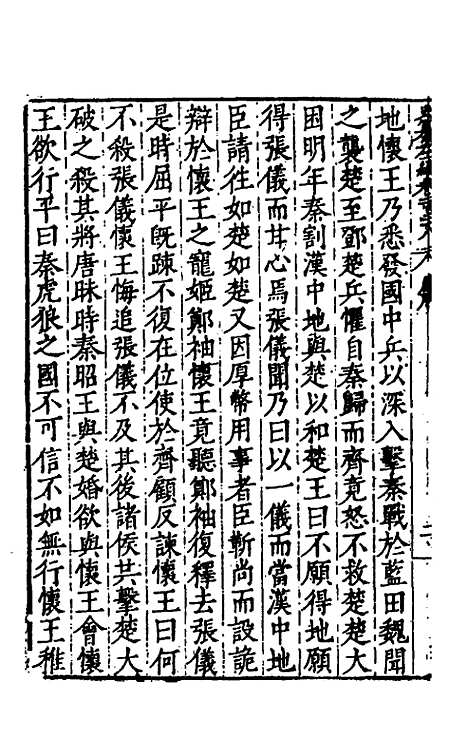 地懷王乃悉發國中兵以深入擊秦戰於藍田魏聞
之襲楚至鄧楚兵懼自秦歸而齊竟怒不救楚楚大
困明年秦割漢中地與楚以和楚王曰不願得地願
得張儀而甘心焉張儀聞乃曰以一儀而當漢中地
臣請往如楚如楚又因厚幣用事者臣靳尚而設詭
辯於懷王之寵姬鄭袖懷王竟聽鄭袖復釋去張儀
是時屈平旣踈不復在位使於齊顧反諫懷王曰何
不殺張儀懷王悔追張儀不及其後諸侯共擊楚大
破之殺其將唐昧時秦昭王與楚婚欲與懷王會懷
王欲行平曰秦虎狼之國不可信不如無行懷王稚